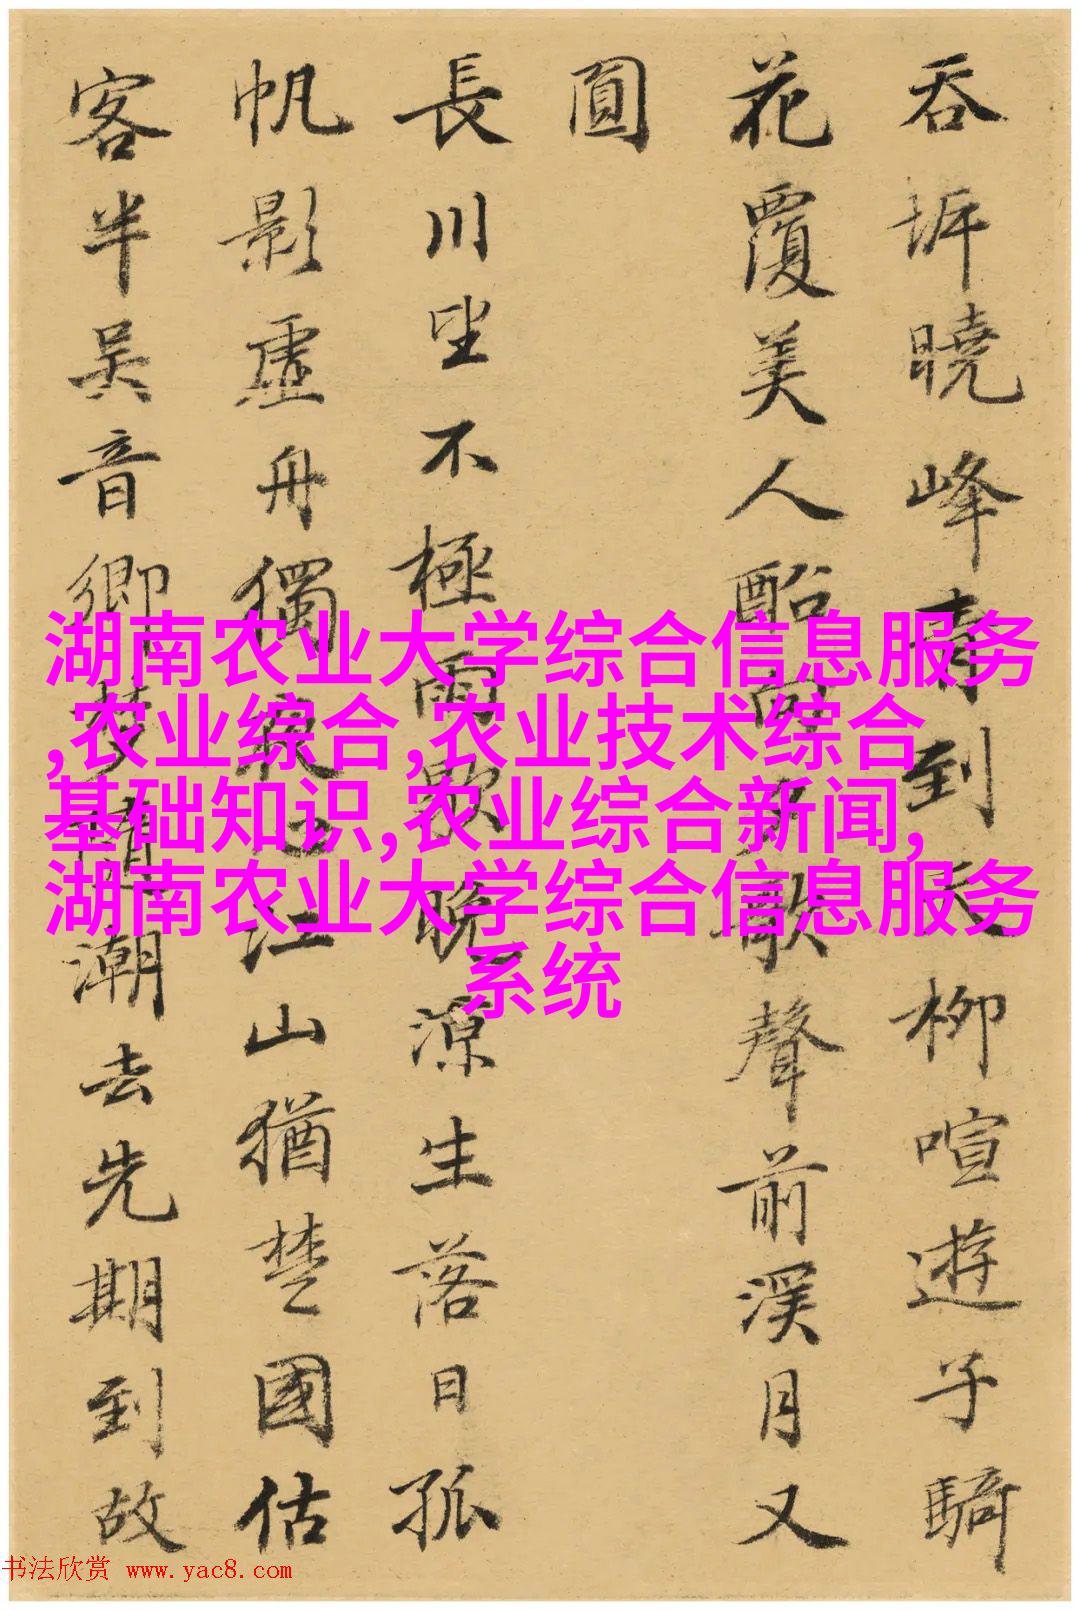 吞圻曉峰青到天柳喧遊子騎
花覆美人酩
歌聲前溪月又
圓
長川坐不極雨歇晚源生落日孤
帆影虛舟獨夜
江山猶楚國估
客半吳音鄉夢
潮去先期到故
湖南农业大学综合信息服务
,农业综合,农业技术综合
基础知识,农业综合新闻,
湖南农业大学综合信息服务
系统
书法欣赏 www.yac8.com